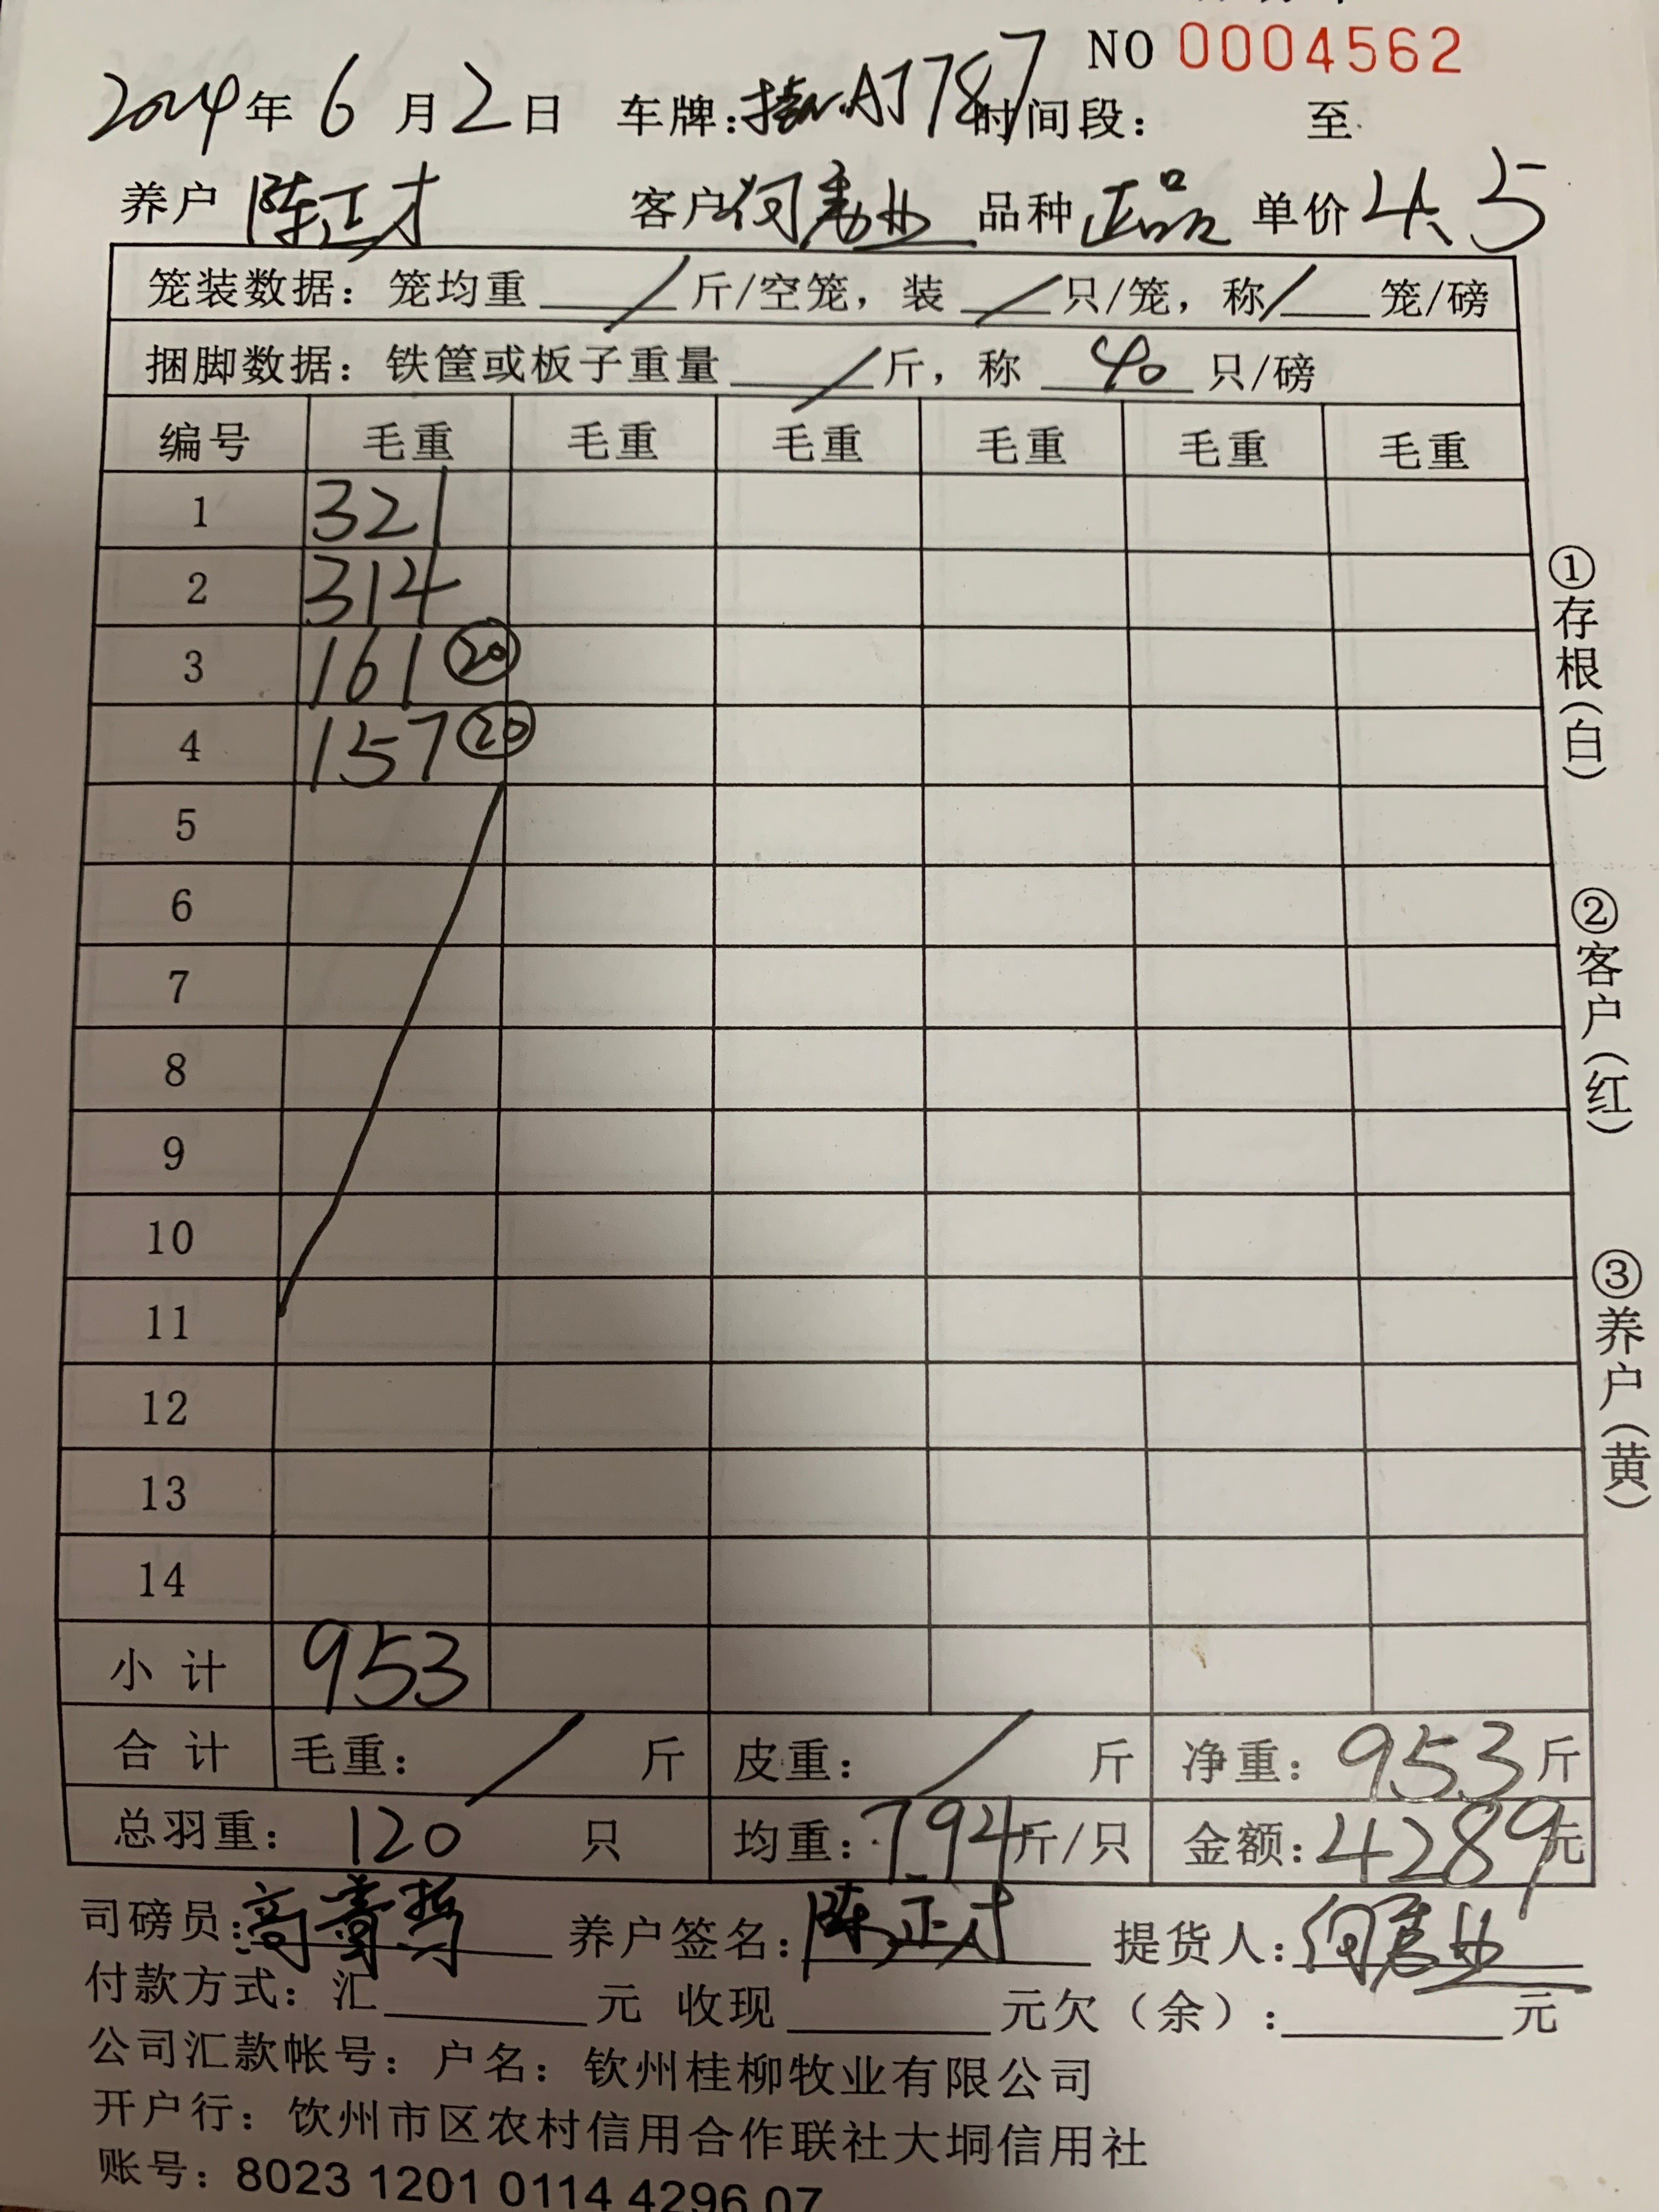 NO 0004562
2024年 6 月 2 日 车牌: AJ787 时间段: 至
养户 陈正才 客户 何 品种 正品 单价 4.5
笼装数据: 笼均重 / 斤/空笼, 装 / 只/笼, 称 / 笼/磅
捆脚数据: 铁筐或板子重量 / 斤, 称 40 只/磅
编号 毛重 毛重 毛重 毛重 毛重 毛重
1 321
2 314
3 161 ⑳
4 157 ⑳
5
6
7
8
9
10
11
12
13
14
小计 953
合计 毛重: / 斤 皮重: / 斤 净重: 953 斤
总羽重: 120 只 均重: 7.94 斤/只 金额: 4289 元
司磅员: 高 养户签名: 陈正才 提货人: 何
付款方式: 汇 元 收现 元欠(余): 元
公司汇款帐号: 户名: 钦州桂柳牧业有限公司
开户行: 钦州市区农村信用合作联社大垌信用社
账号: 8023 1201 0114 4296 07
①存根(白)
②客户(红)
③养户(黄)